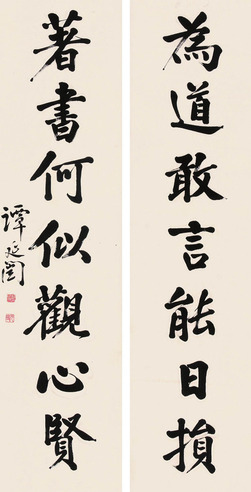 為道敢言能日損
著書何似觀心賢
譚延闓